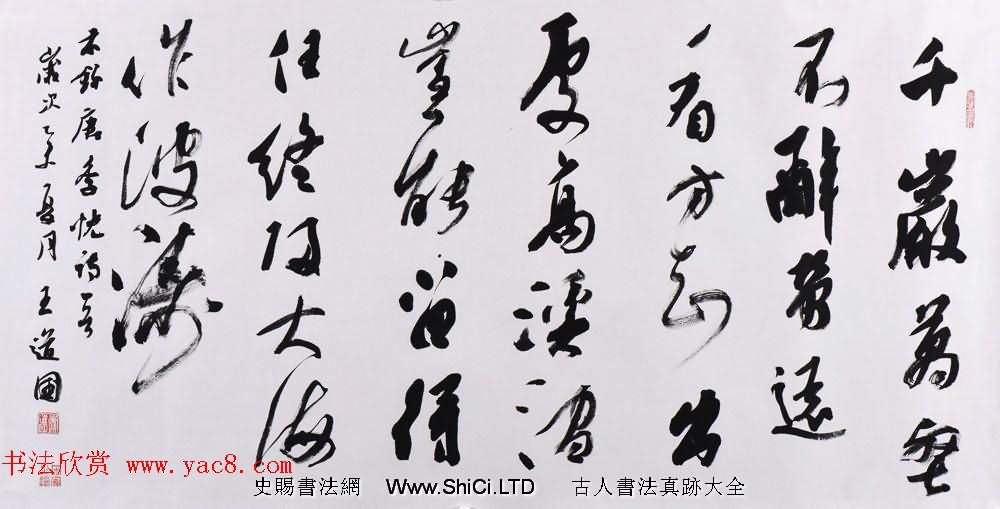 千巖萬壑
不辭勞遠
看方知出
處高溪澗
豈能留得
住終歸大海
作波濤
右錄唐李忱詩一首
歲次乙未夏月 王道國
书法欣赏 www.yac8.com
史賜書法網 Www.ShiCi.LTD 古人書法真跡大全